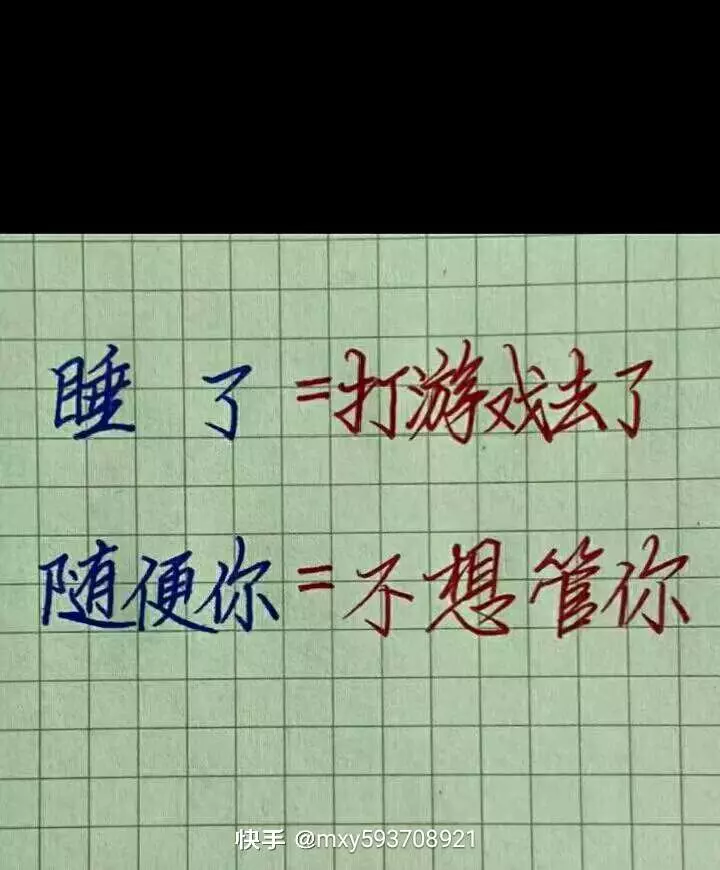 睡了=打游戏去了
随便你=不想管你
快手 @mxy593708921